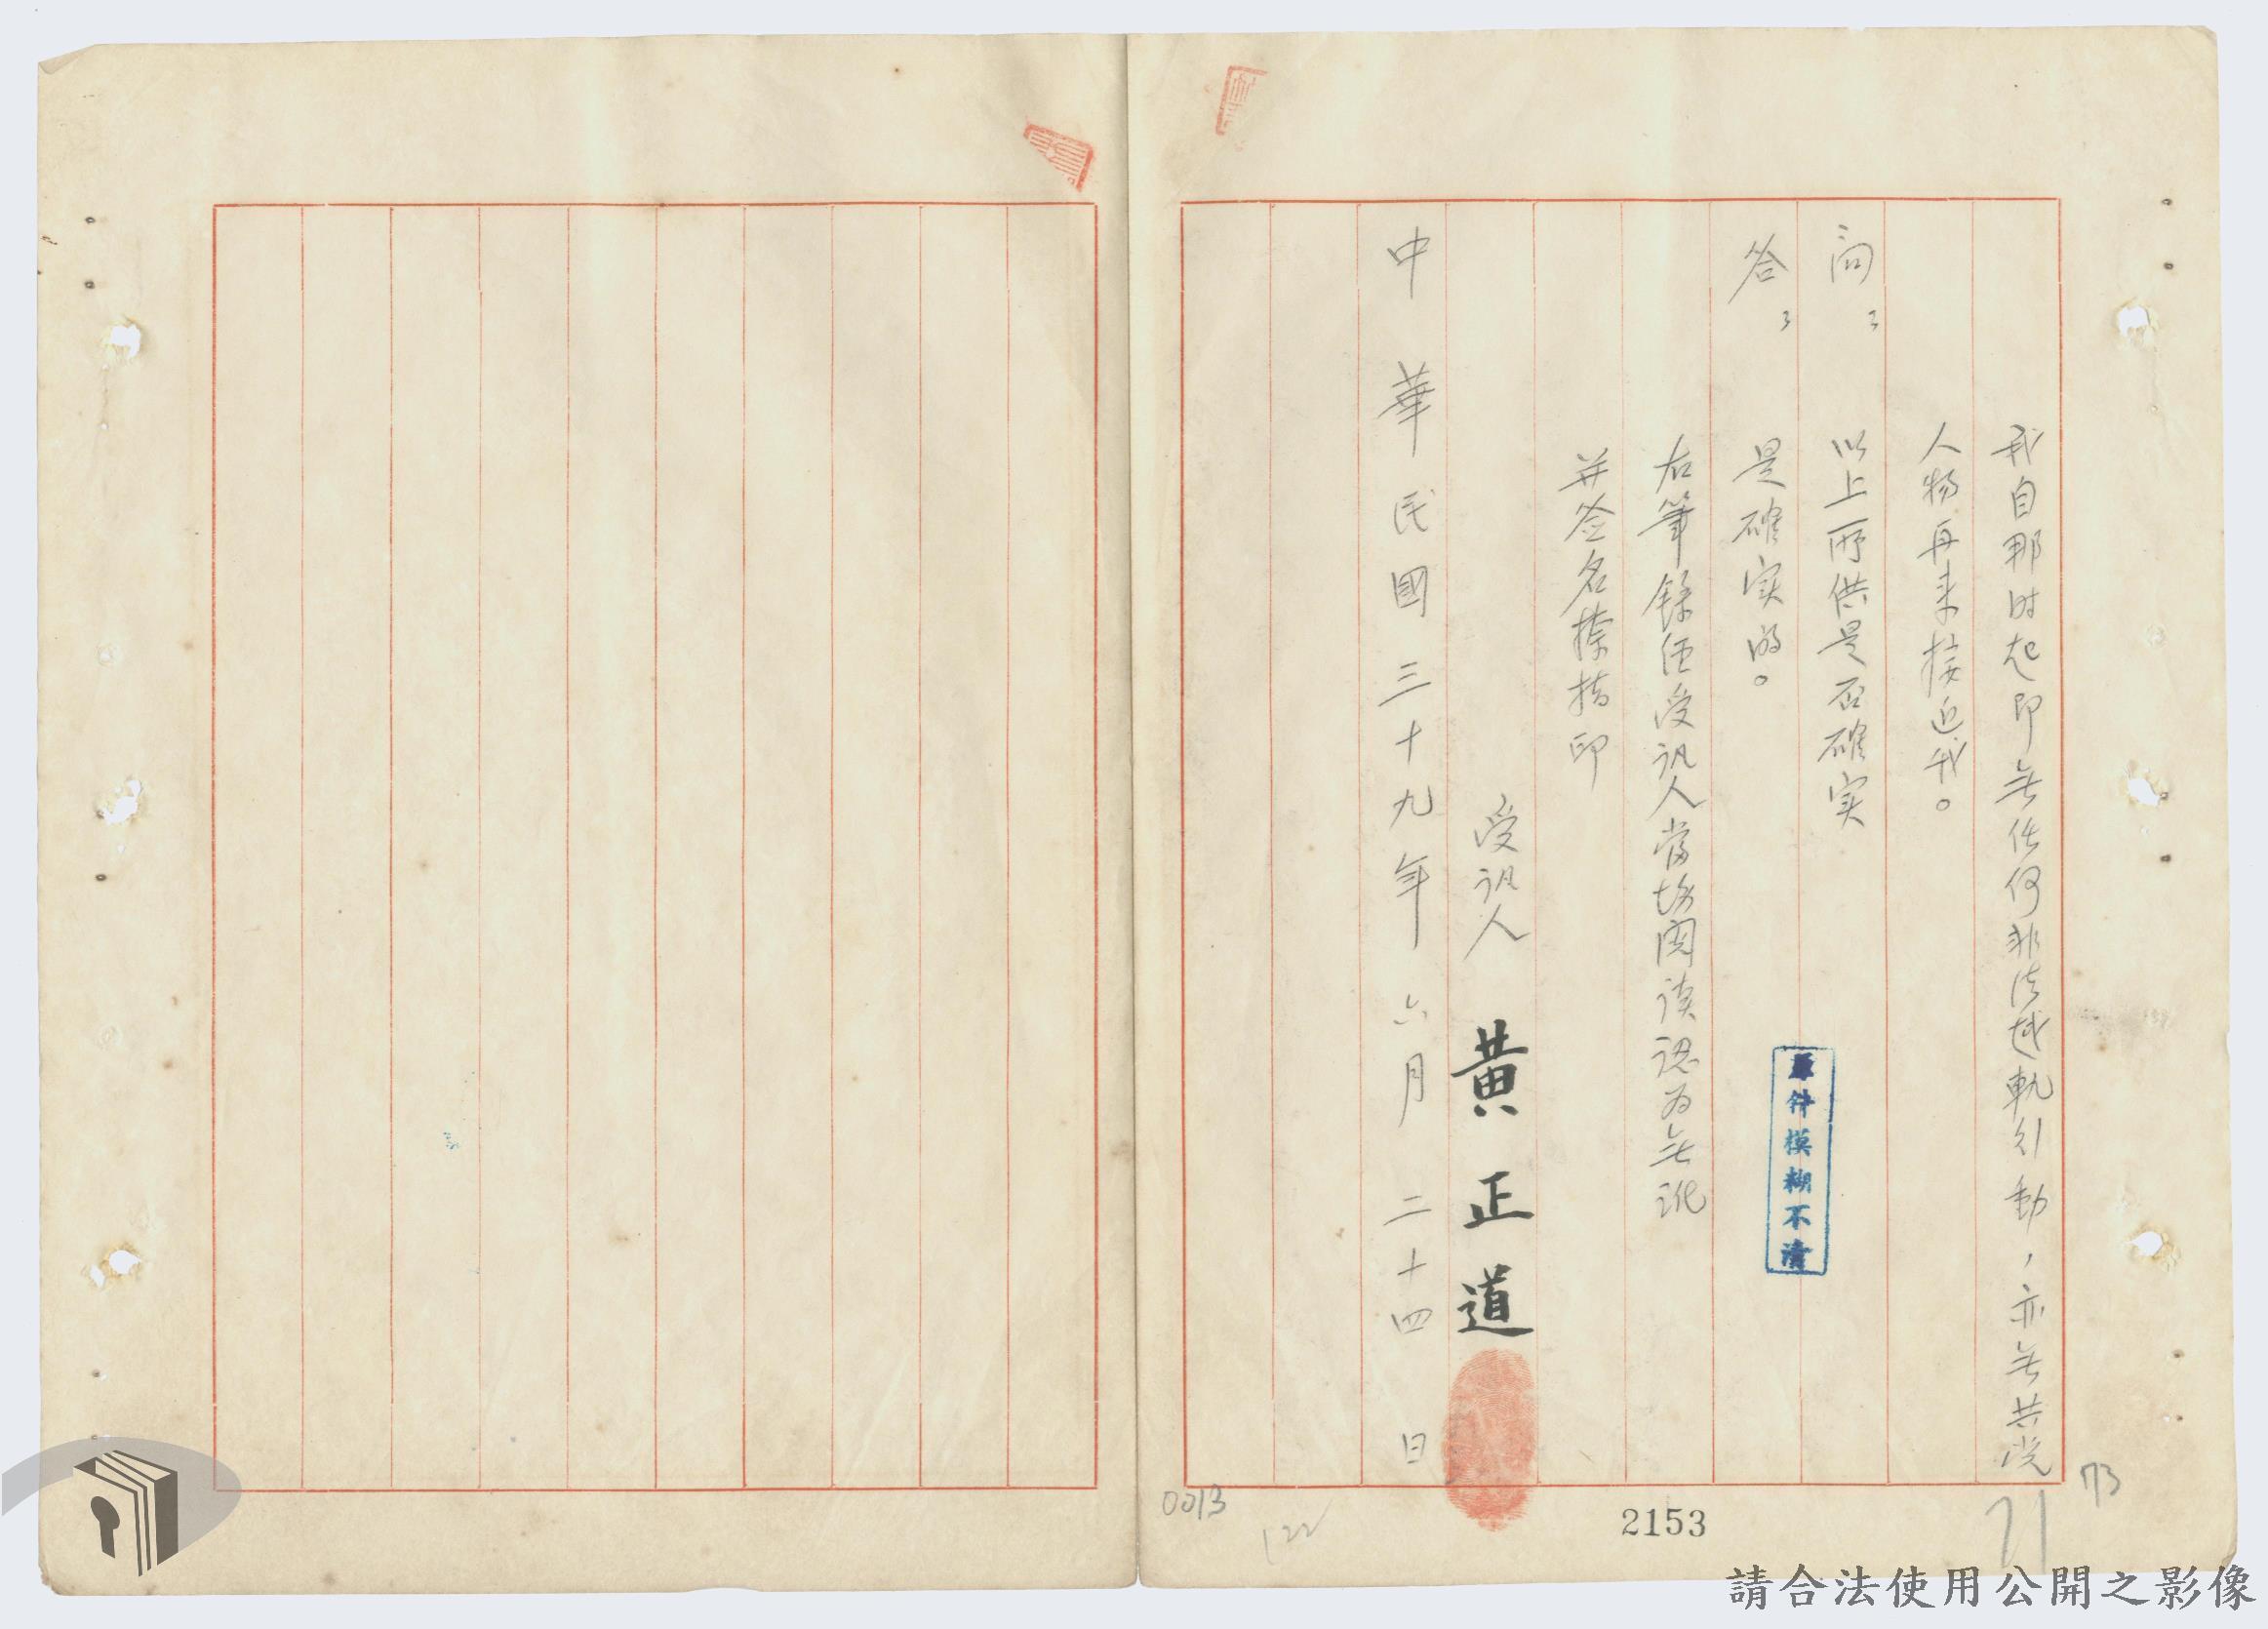 我自那时起即无任何非法越軌引動，亦无共党
人物再来接近我。
问： 以上所供是否確实
答： 是確实的。
右筆錄经受訊人当场阅读認为无訛
并签名捺指印
受訊人 黃正道
中華民國三十九年六月二十四日
原件模糊不清
0013
122
2153
71
73
請合法使用公開之影像